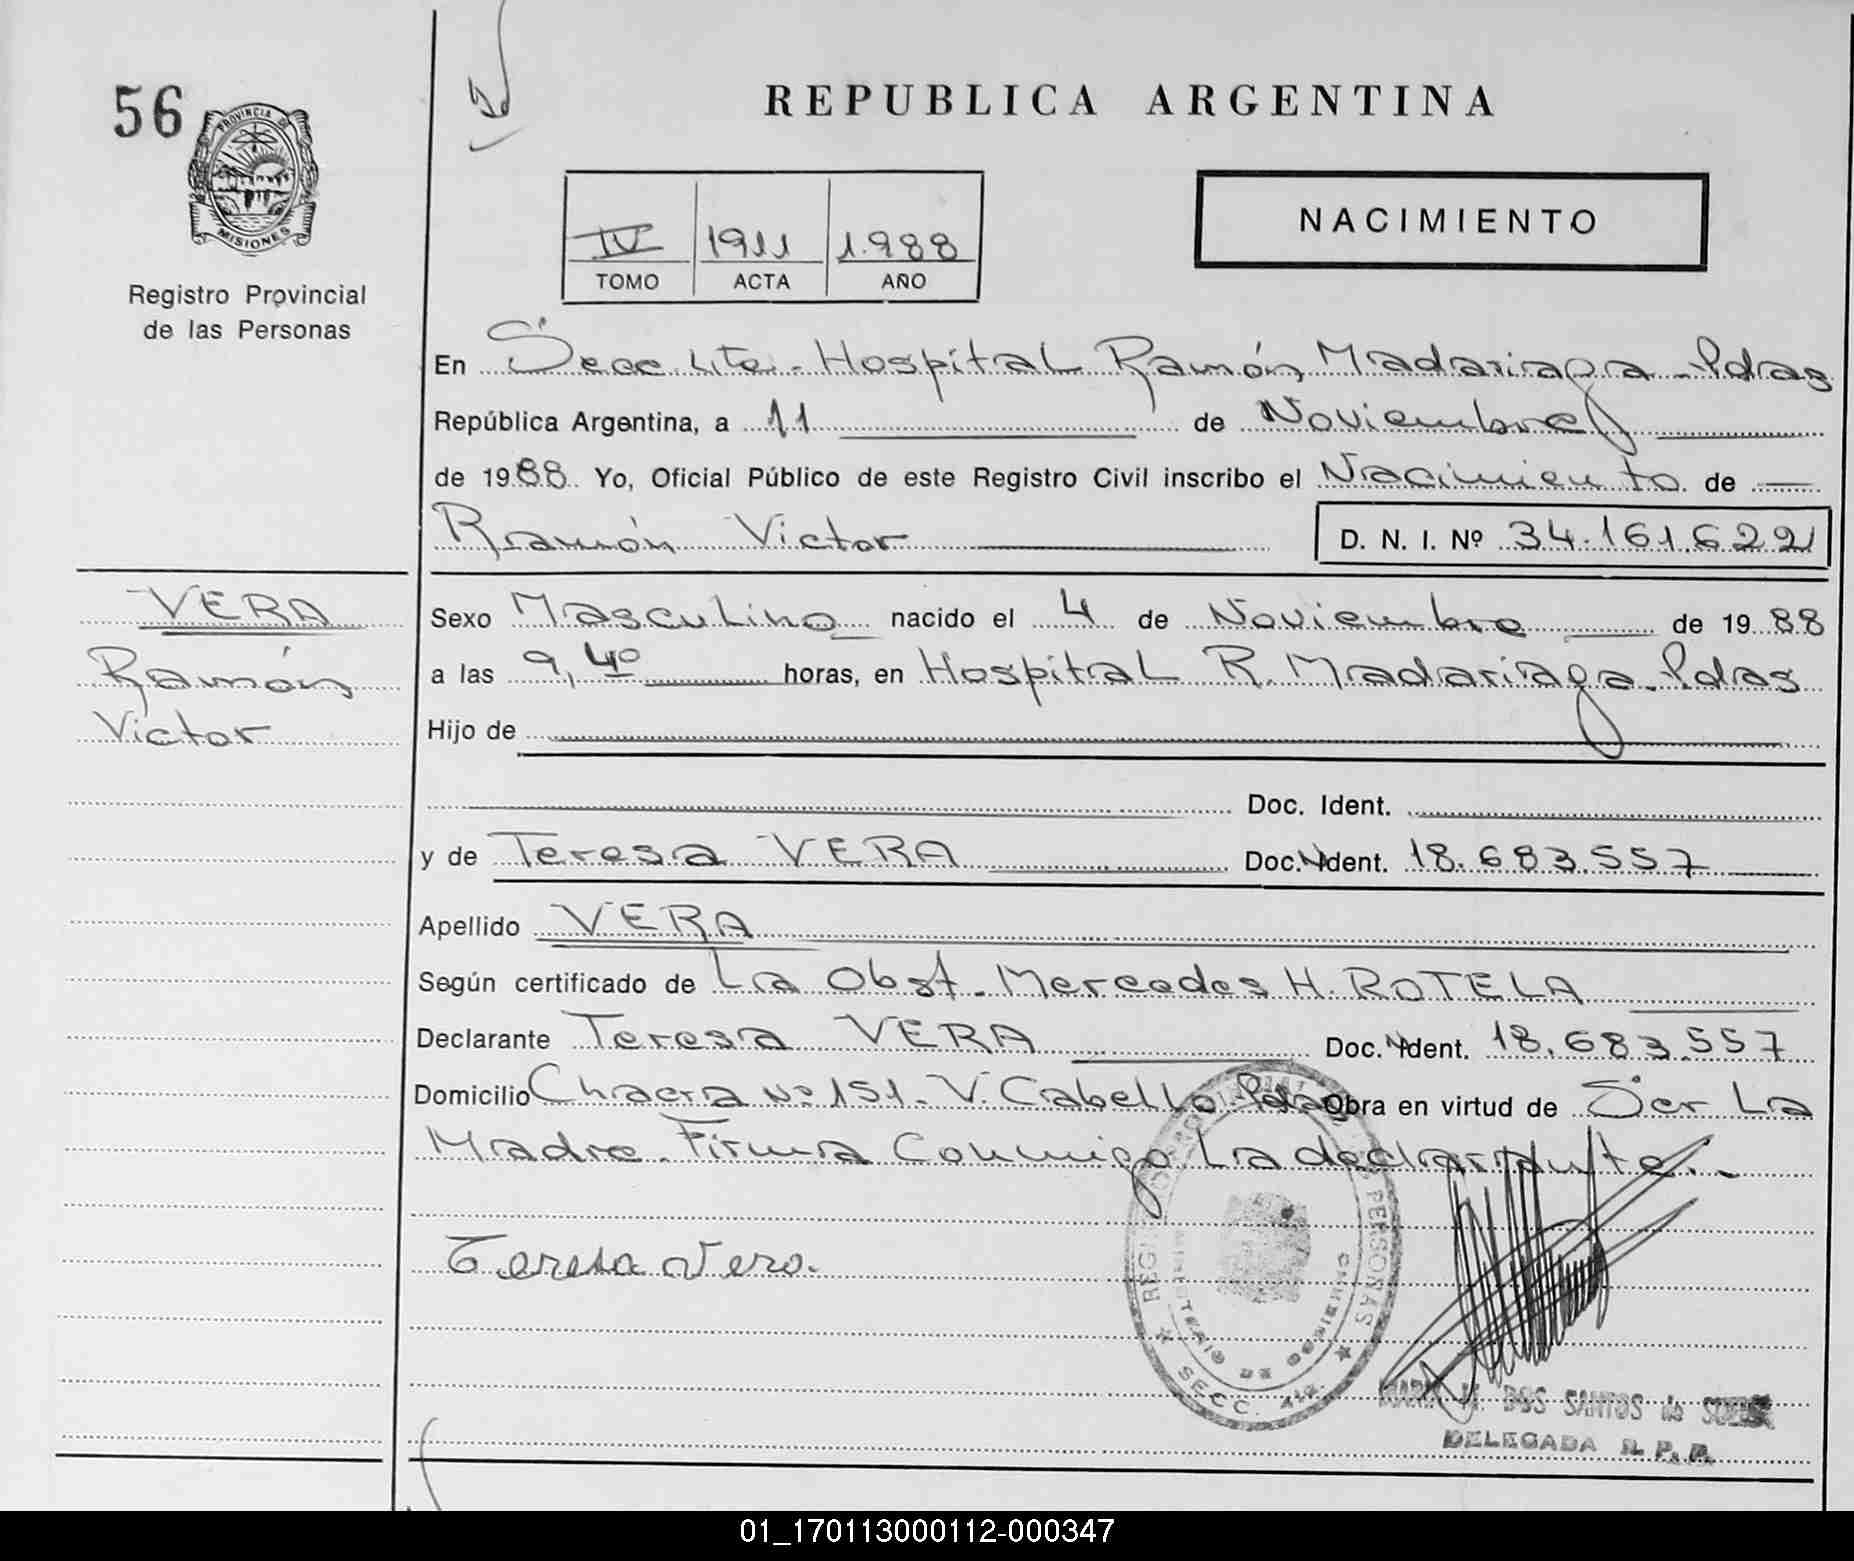 56
REPUBLICA ARGENTINA
PROVINCIA DE
MISIONES
NACIMIENTO
IV 1911 1.988
TOMO ACTA AÑO
Registro Provincial
de las Personas
En Secc. 4ta. Hospital Ramón Madariaga - Pdas
República Argentina, a 11 de Noviembre
de 1988. Yo, Oficial Público de este Registro Civil inscribo el Nacimiento de
Ramón Victor D. N. I. Nº 34.161.622
VERA
Ramón
Victor
Sexo Masculino nacido el 4 de Noviembre de 1988
a las 9,40 horas, en Hospital R. Madariaga - Pdas
Hijo de
Doc. Ident.
y de Teresa VERA Doc. Ident. 18.683.557
Apellido VERA
Según certificado de La Obst. Mercedes H. ROTELA
Declarante Teresa VERA Doc. Ident. 18.683.557
Domicilio Chacra Nº 151. V. Cabello Pdas Obra en virtud de Ser La
Madre. Firma Conmigo La declarante.
Teresa Vera.
PERSONAS
SECC. 4ta.
DOS SANTOS de
DELEGADA R. P. P.
01_170113000112-000347